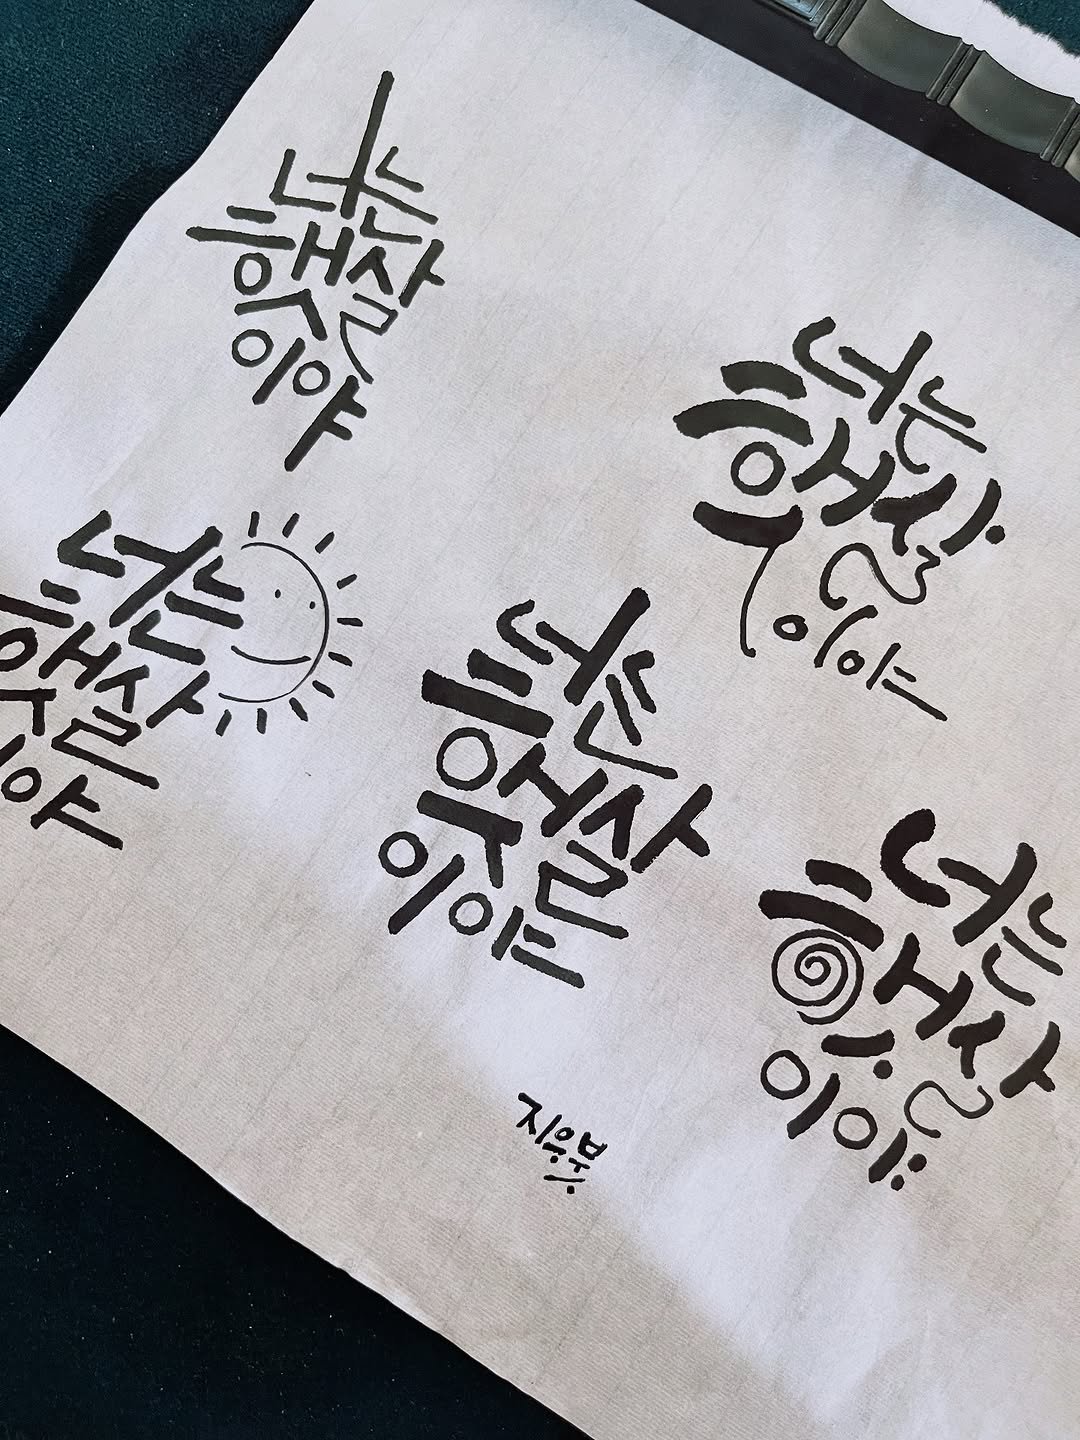 너는
햇살
이야
너는
햇살
이야
너는
햇살
이야
너는
햇살
이야
너는
햇살
이야